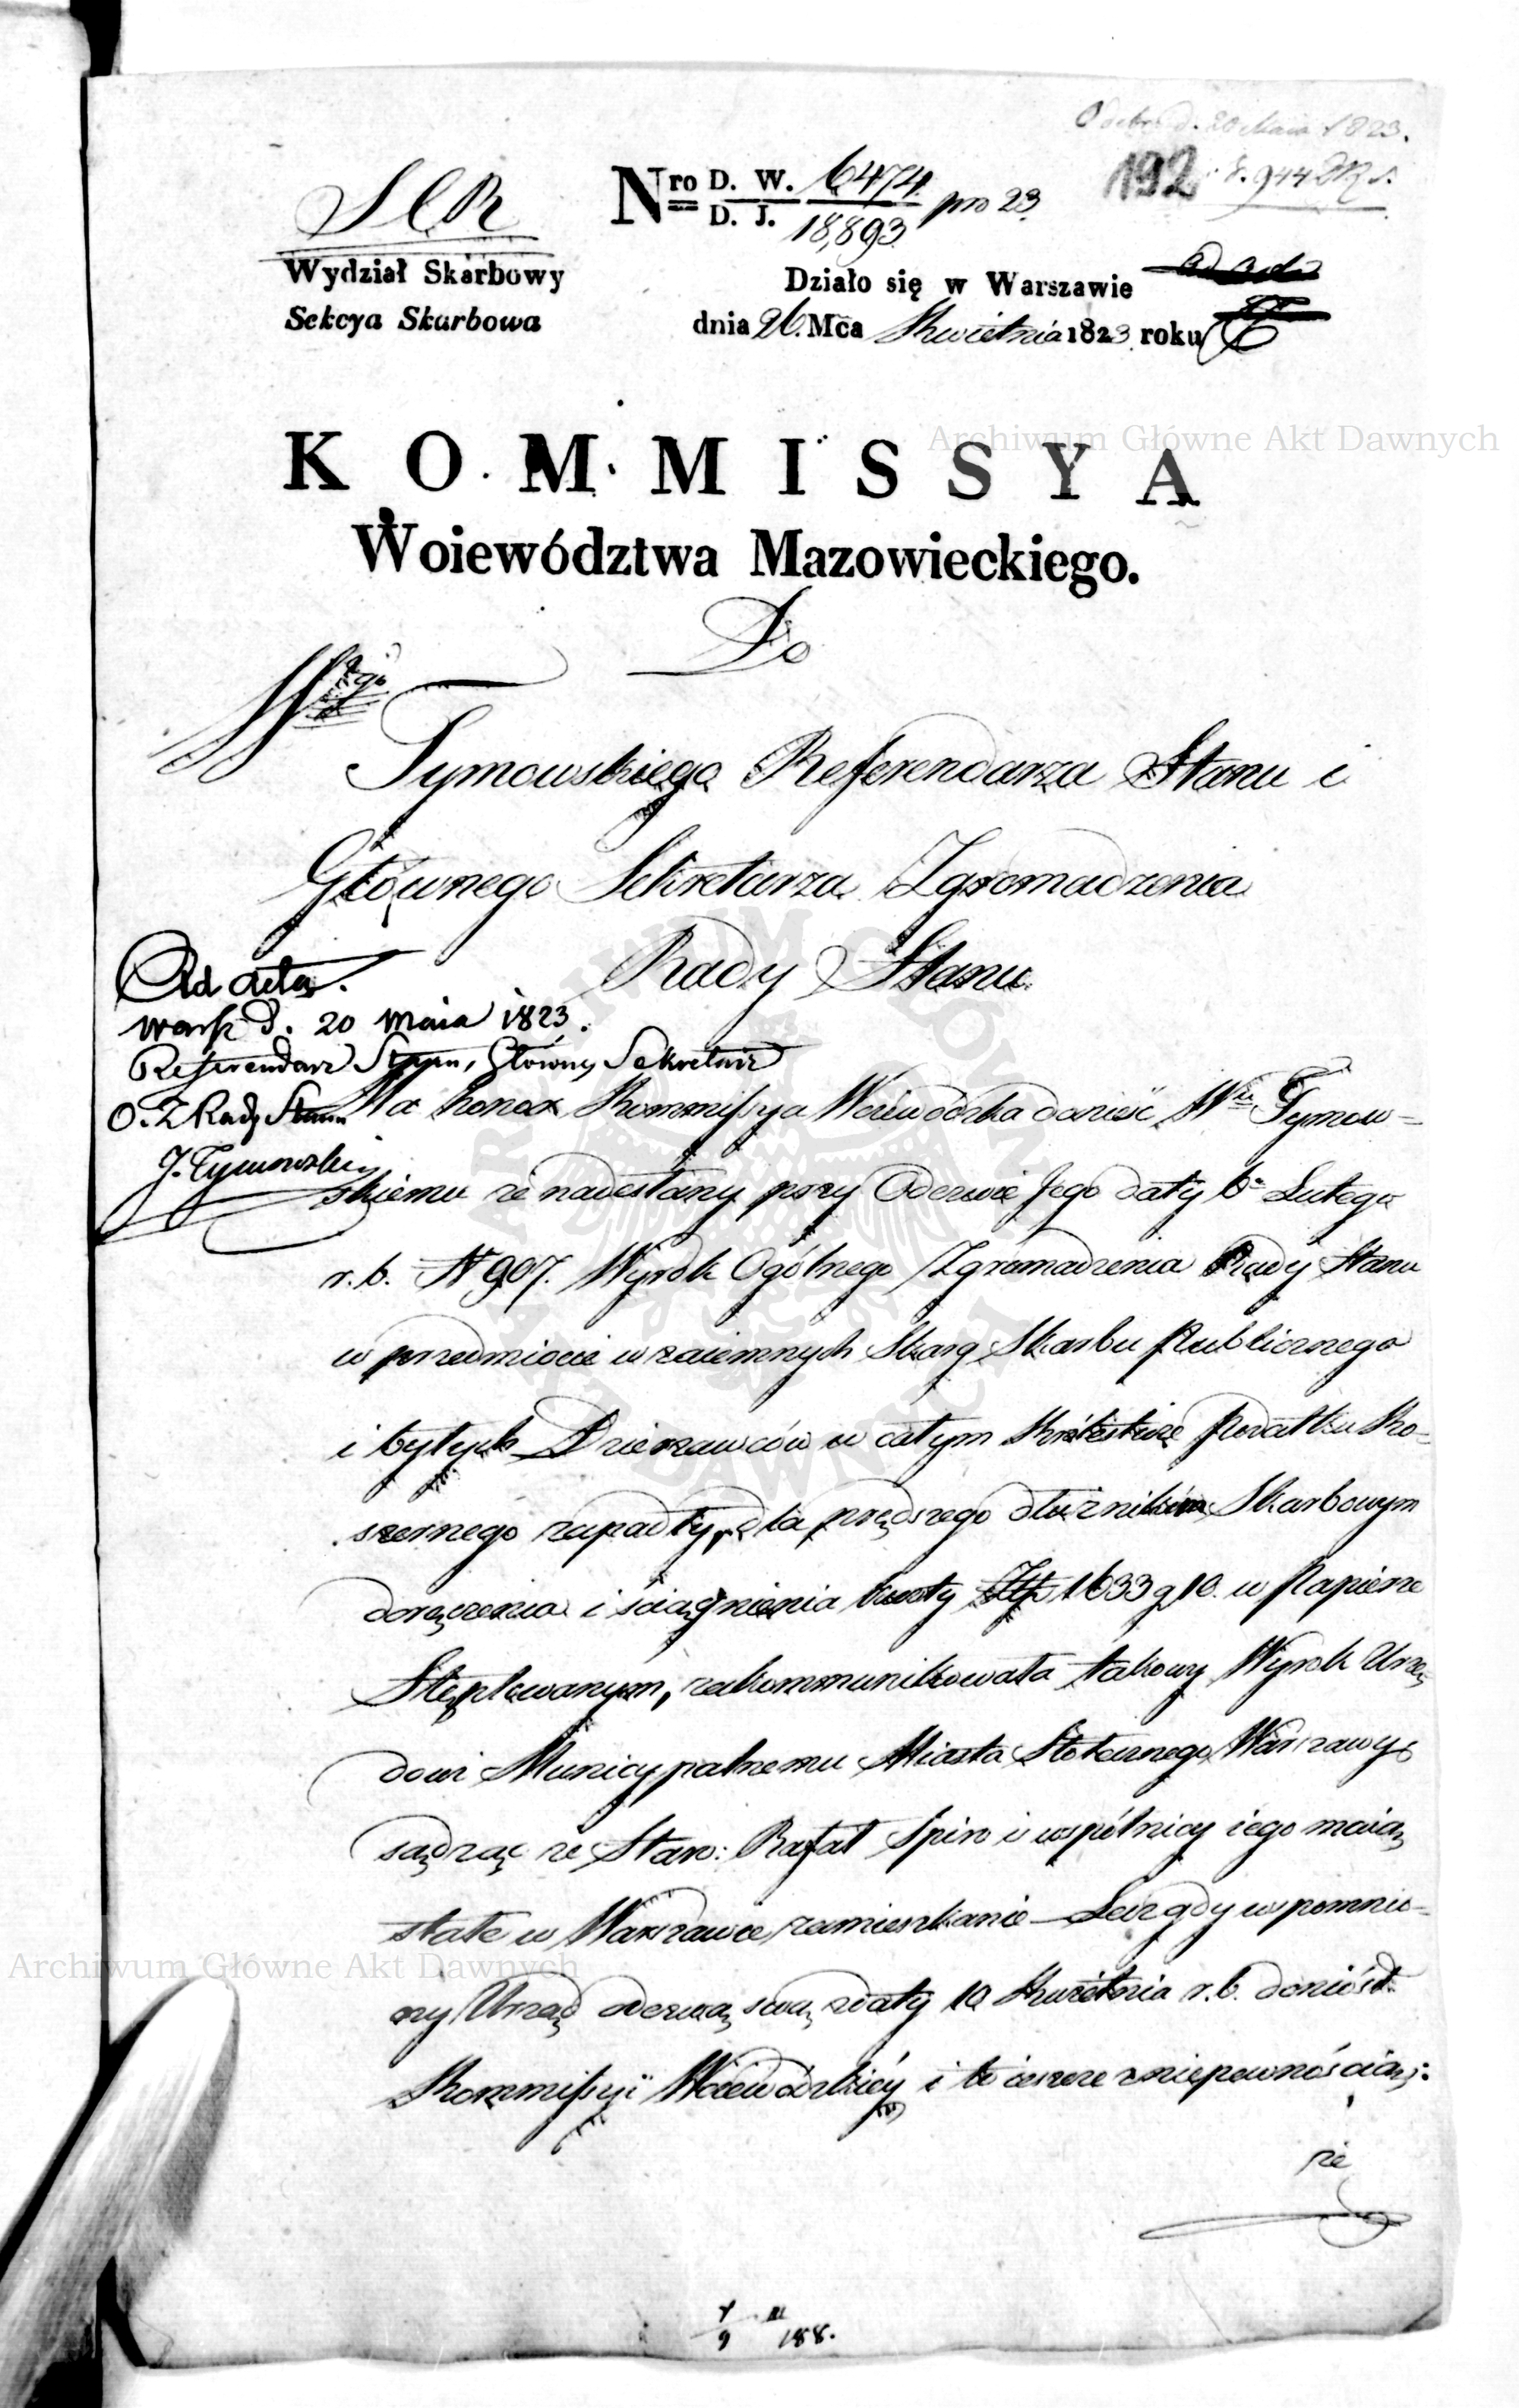 Odebr. d. 20 Maia 1823.
192 944
SCR
Nro D. W. 6474 pro 23
D. J. 18,893
Wydział Skarbowy
Sekcya Skarbowa
Działo się w Warszawie
dnia 26. Mca Kwietnia 1823 roku
KOMMISSYA
Woiewództwa Mazowieckiego.
Do
Wgo
Tymowskiego Referendarza Stanu i
Głównego Sekretarza Zgromadzenia
Rady Stanu
Ad acta.
Warsz. d. 20 Maia 1823.
Referendarz Stanu, Główny Sekretarz
O. Z. Rady Stanu
J. Tymowski
Ma honor Kommissya Woiewódzka donieść Wu Tymow-
skiemu że nadesłany przy Odezwie Jego daty 6o Lutego
r. b. N 907. Wyrok Ogólnego Zgromadzenia Rady Stanu
w przedmiocie wzaiemnych Skarg Skarbu Publicznego
i byłych Dzierzawców w całym Królestwie Podatku Ko-
szernego zapadły, dla prędszego dłużnikom Skarbowym
doręczenia i ściągnienia kwoty Złp 1633 g 10. w Papierze
Stęplowanym, zakommunikowała takowy Wyrok Urzę-
dowi Municypalnemu Miasta Stołecznego Warszawy
sądząc że Staro: Rafał Spiro i wspólnicy iego maią
stałe w Warszawie zamieszkanie – Lecz gdy wspomnio-
ny Urząd odezwą swą z daty 10 Kwietnia r. b. doniósł
Kommissyi Woiewódzkiey i to ieszcze z niepewnością:
że
188.
Archiwum Główne Akt Dawnych
Archiwum Główne Akt Dawnych
ARCHIWUM GŁÓWNE AKT DAWNYCH